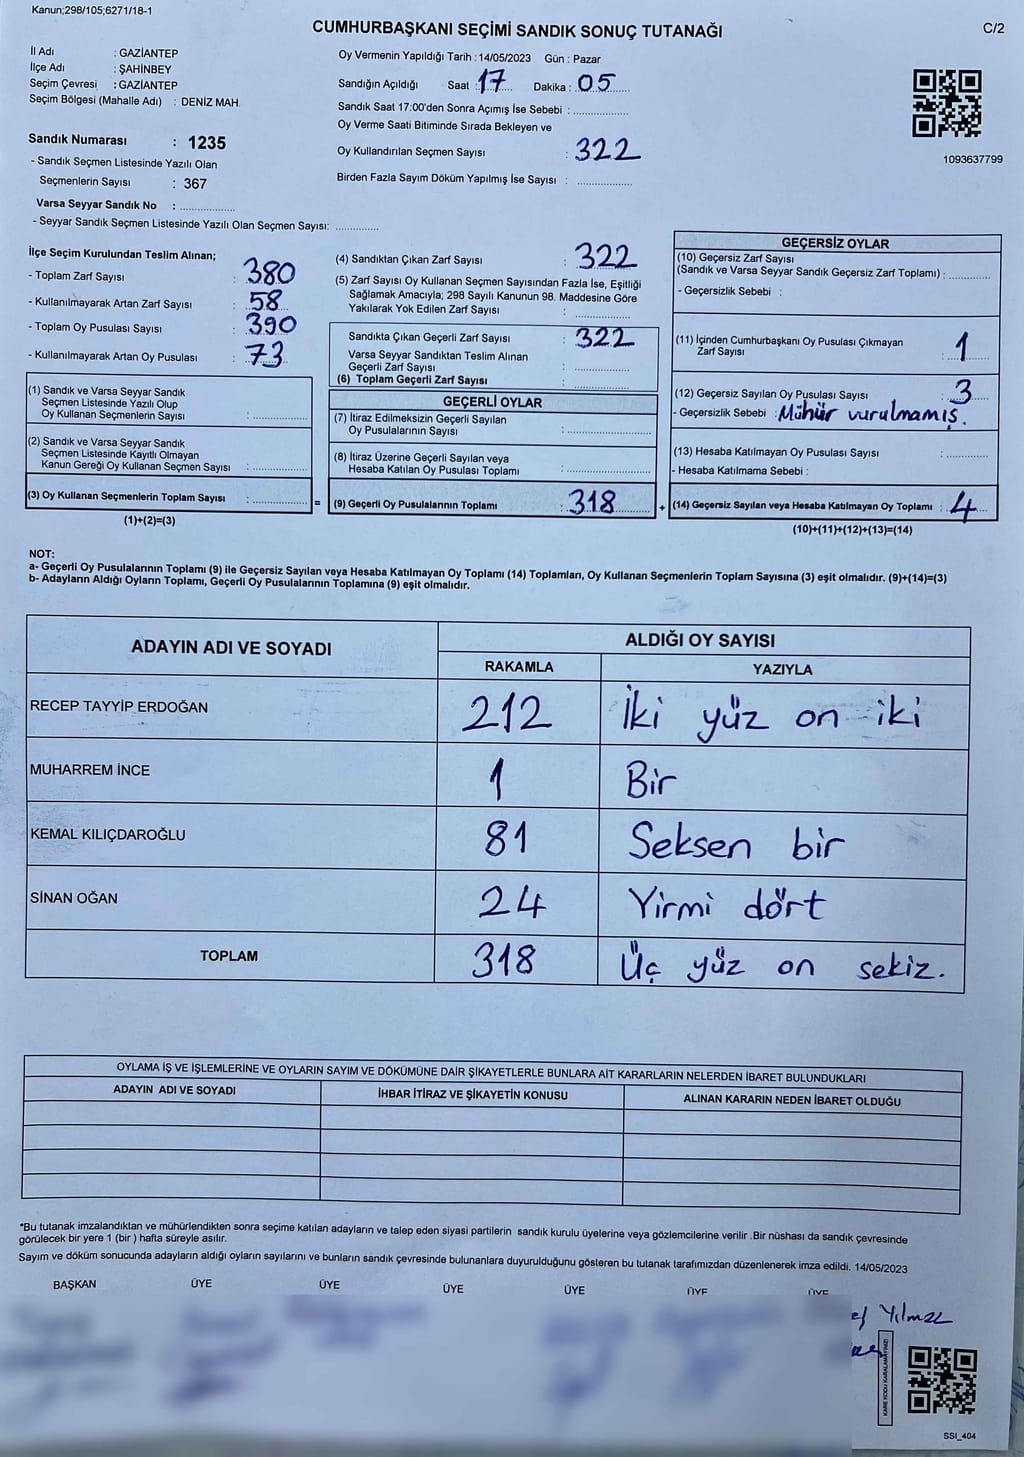 Kanun;298/105;6271/18-1
CUMHURBAŞKANI SEÇİMİ SANDIK SONUÇ TUTANAĞI
C/2
İl Adı : GAZİANTEP
İlçe Adı : ŞAHİNBEY
Seçim Çevresi : GAZİANTEP
Seçim Bölgesi (Mahalle Adı) : DENİZ MAH.
Sandık Numarası : 1235
- Sandık Seçmen Listesinde Yazılı Olan
Seçmenlerin Sayısı : 367
Varsa Seyyar Sandık No : ................
- Seyyar Sandık Seçmen Listesinde Yazılı Olan Seçmen Sayısı: .............
Oy Vermenin Yapıldığı Tarih : 14/05/2023 Gün : Pazar
Sandığın Açıldığı Saat : 17 Dakika : 05
Sandık Saat 17:00'den Sonra Açımış İse Sebebi : ................
Oy Verme Saati Bitiminde Sırada Bekleyen ve
Oy Kullandırılan Seçmen Sayısı : 322
Birden Fazla Sayım Döküm Yapılmış İse Sayısı : ................
1093637799
İlçe Seçim Kurulundan Teslim Alınan;
- Toplam Zarf Sayısı : 380
- Kullanılmayarak Artan Zarf Sayısı : 58
- Toplam Oy Pusulası Sayısı : 390
- Kullanılmayarak Artan Oy Pusulası : 73
(1) Sandık ve Varsa Seyyar Sandık
Seçmen Listesinde Yazılı Olup
Oy Kullanan Seçmenlerin Sayısı : ................
(2) Sandık ve Varsa Seyyar Sandık
Seçmen Listesinde Kayıtlı Olmayan
Kanun Gereği Oy Kullanan Seçmen Sayısı : ................
(3) Oy Kullanan Seçmenlerin Toplam Sayısı : ................ =
(1)+(2)=(3)
(4) Sandıktan Çıkan Zarf Sayısı : 322
(5) Zarf Sayısı Oy Kullanan Seçmen Sayısından Fazla İse, Eşitliği
Sağlamak Amacıyla; 298 Sayılı Kanunun 98. Maddesine Göre
Yakılarak Yok Edilen Zarf Sayısı : ................
Sandıkta Çıkan Geçerli Zarf Sayısı : 322
Varsa Seyyar Sandıktan Teslim Alınan
Geçerli Zarf Sayısı : ................
(6) Toplam Geçerli Zarf Sayısı : ................
GEÇERLİ OYLAR
(7) İtiraz Edilmeksizin Geçerli Sayılan
Oy Pusulalarının Sayısı : ................
(8) İtiraz Üzerine Geçerli Sayılan veya
Hesaba Katılan Oy Pusulası Toplamı : ................
(9) Geçerli Oy Pusulalarının Toplamı : 318 +
GEÇERSİZ OYLAR
(10) Geçersiz Zarf Sayısı
(Sandık ve Varsa Seyyar Sandık Geçersiz Zarf Toplamı) : ............
- Geçersizlik Sebebi :
(11) İçinden Cumhurbaşkanı Oy Pusulası Çıkmayan
Zarf Sayısı : 1
(12) Geçersiz Sayılan Oy Pusulası Sayısı : 3
- Geçersizlik Sebebi : Mühür vurulmamış.
(13) Hesaba Katılmayan Oy Pusulası Sayısı : ............
- Hesaba Katılmama Sebebi :
(14) Geçersiz Sayılan veya Hesaba Katılmayan Oy Toplamı : 4
(10)+(11)+(12)+(13)=(14)
NOT:
a- Geçerli Oy Pusulalarının Toplamı (9) ile Geçersiz Sayılan veya Hesaba Katılmayan Oy Toplamı (14) Toplamları, Oy Kullanan Seçmenlerin Toplam Sayısına (3) eşit olmalıdır. (9)+(14)=(3)
b- Adayların Aldığı Oyların Toplamı, Geçerli Oy Pusulalarının Toplamına (9) eşit olmalıdır.
ADAYIN ADI VE SOYADI ALDIĞI OY SAYISI
RAKAMLA YAZIYLA
RECEP TAYYİP ERDOĞAN 212 İki yüz on iki
MUHARREM İNCE 1 Bir
KEMAL KILIÇDAROĞLU 81 Seksen bir
SİNAN OĞAN 24 Yirmi dört
TOPLAM 318 Üç yüz on sekiz.
OYLAMA İŞ VE İŞLEMLERİNE VE OYLARIN SAYIM VE DÖKÜMÜNE DAİR ŞİKAYETLERLE BUNLARA AİT KARARLARIN NELERDEN İBARET BULUNDUKLARI
ADAYIN ADI VE SOYADI İHBAR İTİRAZ VE ŞİKAYETİN KONUSU ALINAN KARARIN NEDEN İBARET OLDUĞU
*Bu tutanak imzalandıktan ve mühürlendikten sonra seçime katılan adayların ve talep eden siyasi partilerin sandık kurulu üyelerine veya gözlemcilerine verilir .Bir nüshası da sandık çevresinde
görülecek bir yere 1 (bir ) hafta süreyle asılır.
Sayım ve döküm sonucunda adayların aldığı oyların sayılarını ve bunların sandık çevresinde bulunanlara duyurulduğunu gösteren bu tutanak tarafımızdan düzenlenerek imza edildi. 14/05/2023
BAŞKAN ÜYE ÜYE ÜYE ÜYE ÜYE ÜYE
Yılmaz
KARE KODU KARALAMAYINIZ!
SSI_404